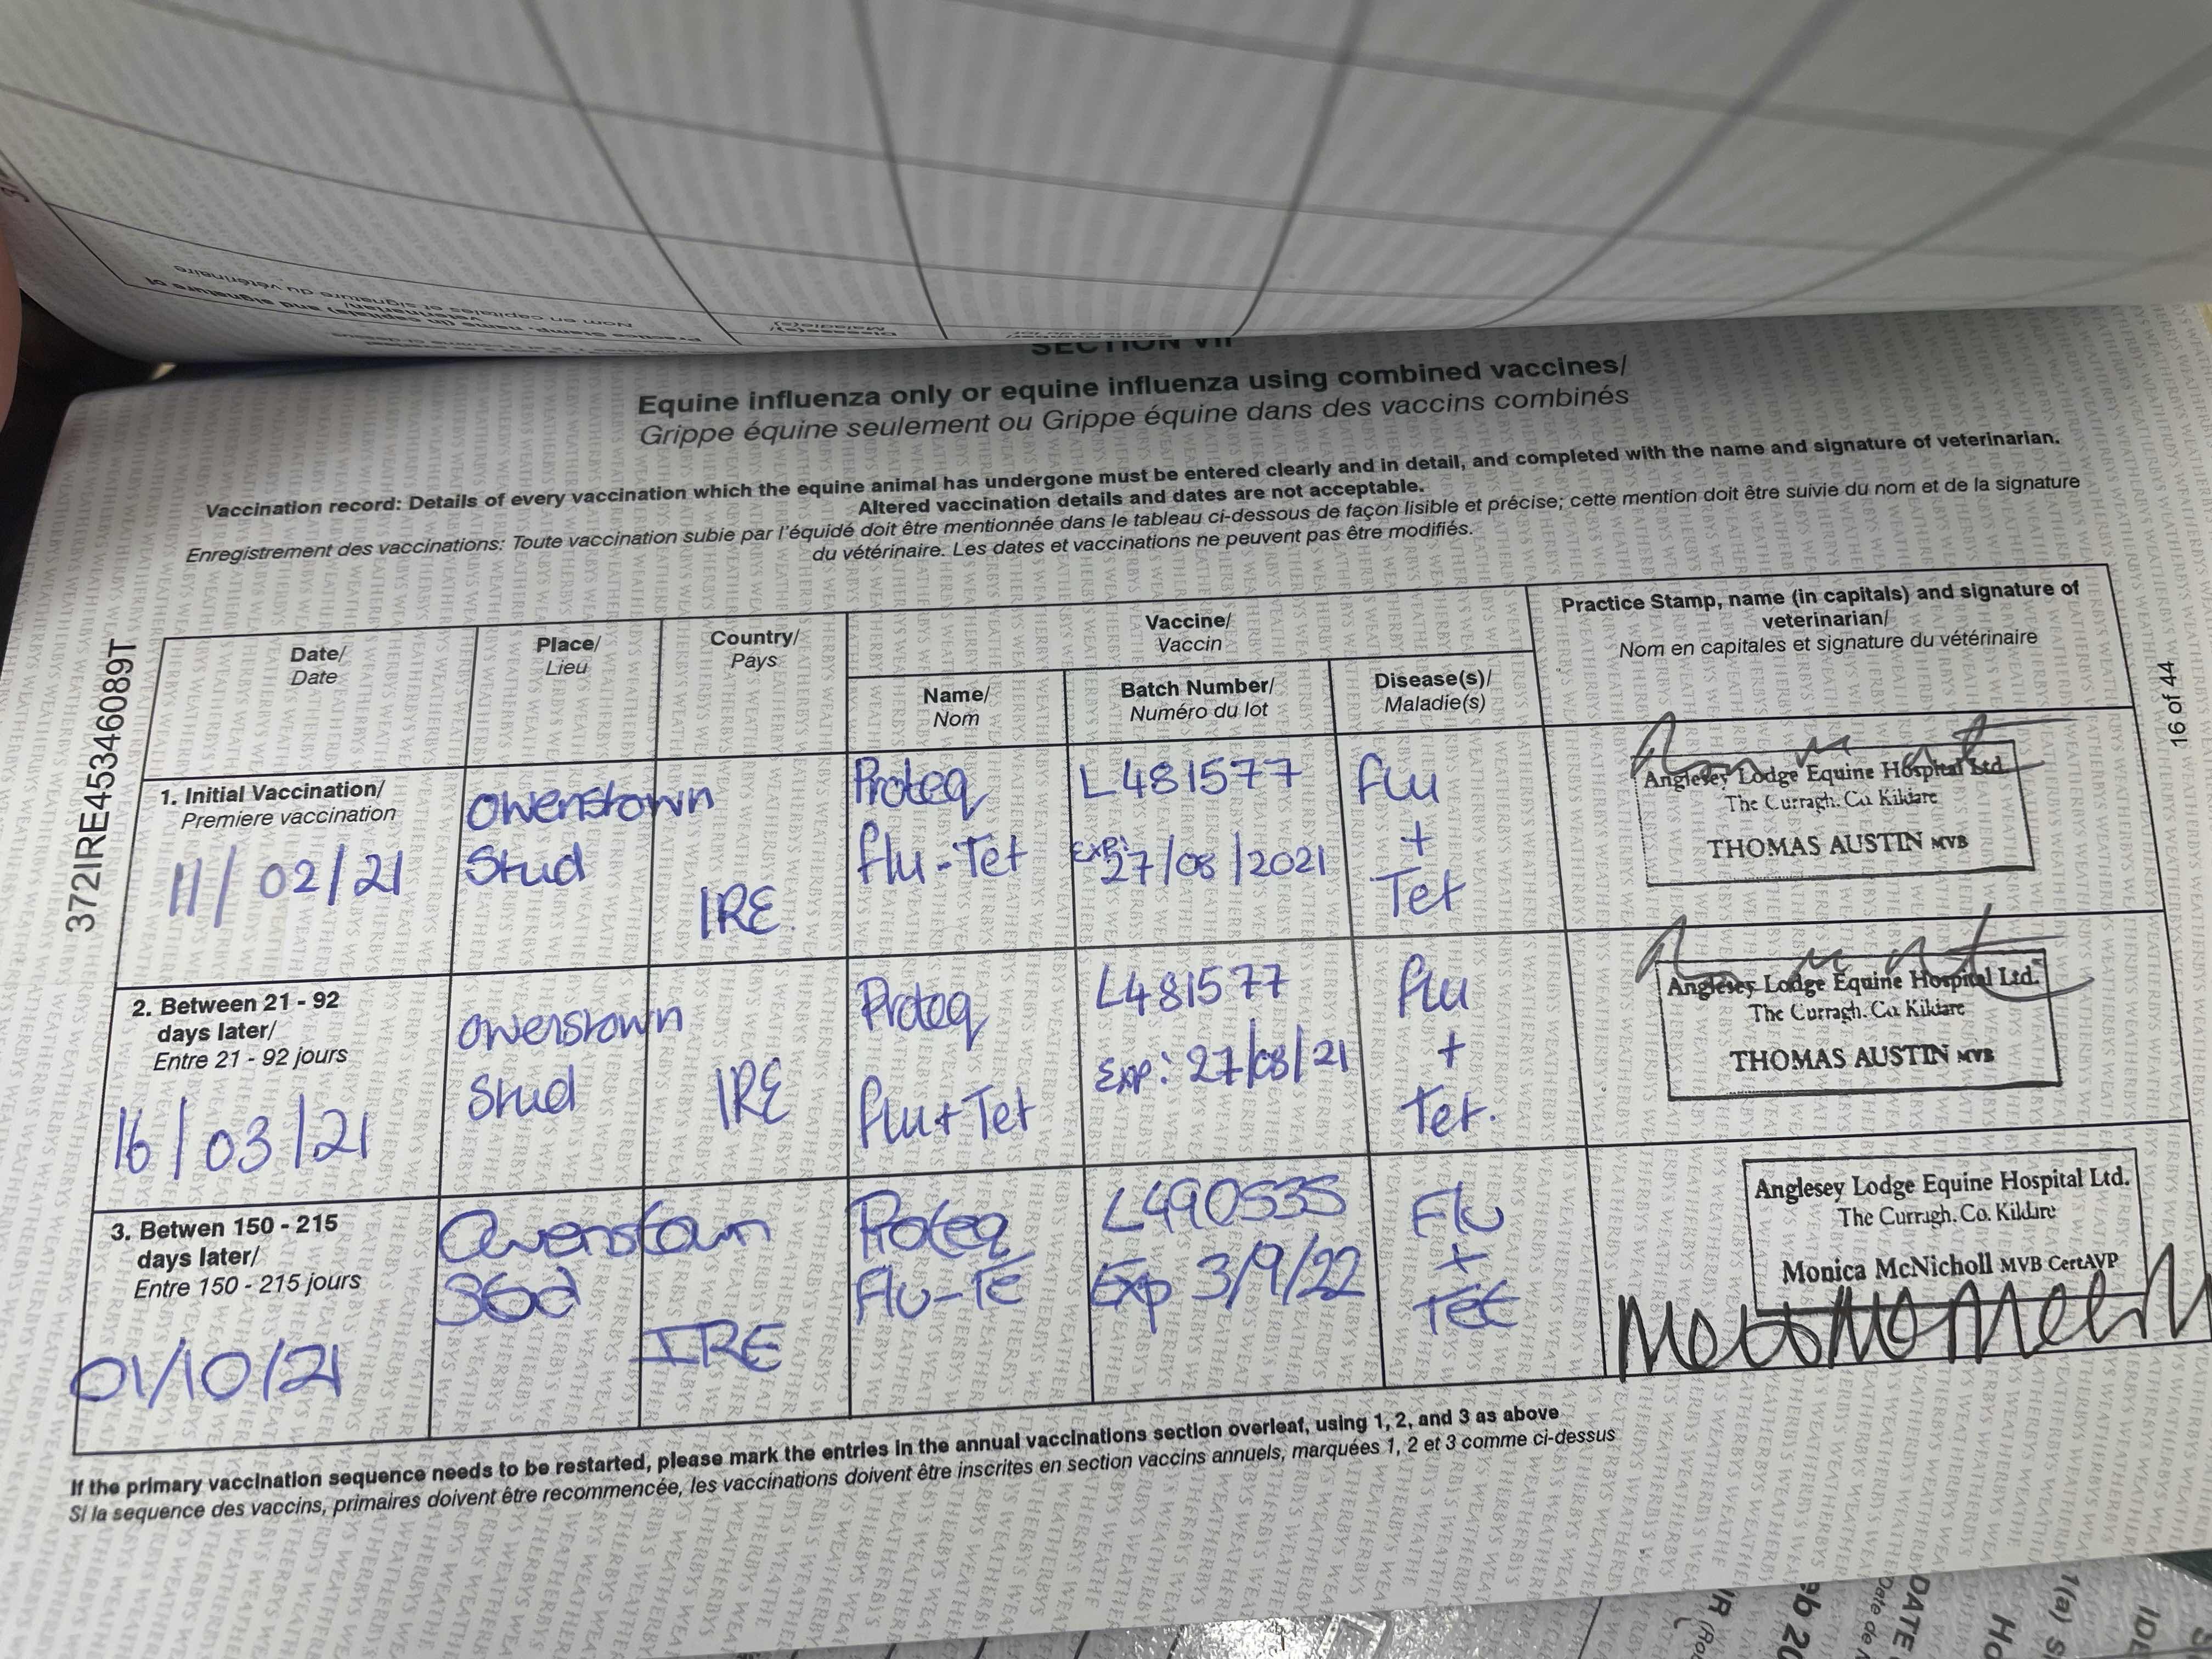 SECTION VII
Equine influenza only or equine influenza using combined vaccines/
Grippe équine seulement ou Grippe équine dans des vaccins combinés
Vaccination record: Details of every vaccination which the equine animal has undergone must be entered clearly and in detail, and completed with the name and signature of veterinarian.
Altered vaccination details and dates are not acceptable.
Enregistrement des vaccinations: Toute vaccination subie par l'équidé doit être mentionnée dans le tableau ci-dessous de façon lisible et précise; cette mention doit être suivie du nom et de la signature
du vétérinaire. Les dates et vaccinations ne peuvent pas être modifiés.
372IRE45346089T
16 of 44
Date/
Date
Place/
Lieu
Country/
Pays
Vaccine/
Vaccin
Name/
Nom
Batch Number/
Numéro du lot
Disease(s)/
Maladie(s)
Practice Stamp, name (in capitals) and signature of
veterinarian/
Nom en capitales et signature du vétérinaire
1. Initial Vaccination/
Premiere vaccination
11/02/21
Owenstown
Stud
IRE.
Proteq
flu-Tet
L481577
Exp: 27/08/2021
flu
+
Tet
Anglesey Lodge Equine Hospital Ltd.
The Curragh. Co. Kildare
THOMAS AUSTIN MVB
2. Between 21 - 92
days later/
Entre 21 - 92 jours
16/03/21
Owenstown
Stud
IRE
Proteq
flu+Tet
L481577
Exp: 27/08/21
flu
+
Tet.
Anglesey Lodge Equine Hospital Ltd.
The Curragh. Co. Kildare
THOMAS AUSTIN MVB
3. Betwen 150 - 215
days later/
Entre 150 - 215 jours
01/10/21
Owenstown
Stud
IRE
Proteq
Flu-Te
L490535
Exp 3/9/22
Flu
+
Tet
Anglesey Lodge Equine Hospital Ltd.
The Curragh. Co. Kildare
Monica McNicholl MVB CertAVP
If the primary vaccination sequence needs to be restarted, please mark the entries in the annual vaccinations section overleaf, using 1, 2, and 3 as above
Si la sequence des vaccins, primaires doivent être recommencée, les vaccinations doivent être inscrites en section vaccins annuels, marquées 1, 2 et 3 comme ci-dessus